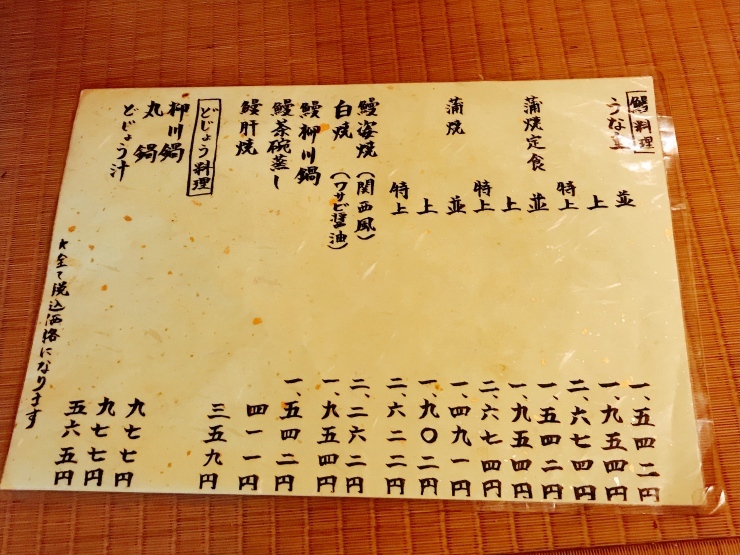 鰻料理
うな重 並 一、五四二円
上 一、九五四円
特上 二、六七四円
蒲焼定食 並 一、五四二円
上 一、九五四円
特上 二、六七四円
蒲焼 並 一、四九一円
上 一、九〇二円
特上 二、六二二円
鰻姿焼(関西風) 二、二六二円
白焼(ワサビ醤油) 一、九五四円
鰻柳川鍋 一、五四二円
鰻茶碗蒸し 四一一円
鰻肝焼 三五九円
どじょう料理
柳川鍋 九七七円
丸鍋 九七七円
どじょう汁 五六五円
全て税込価格になります